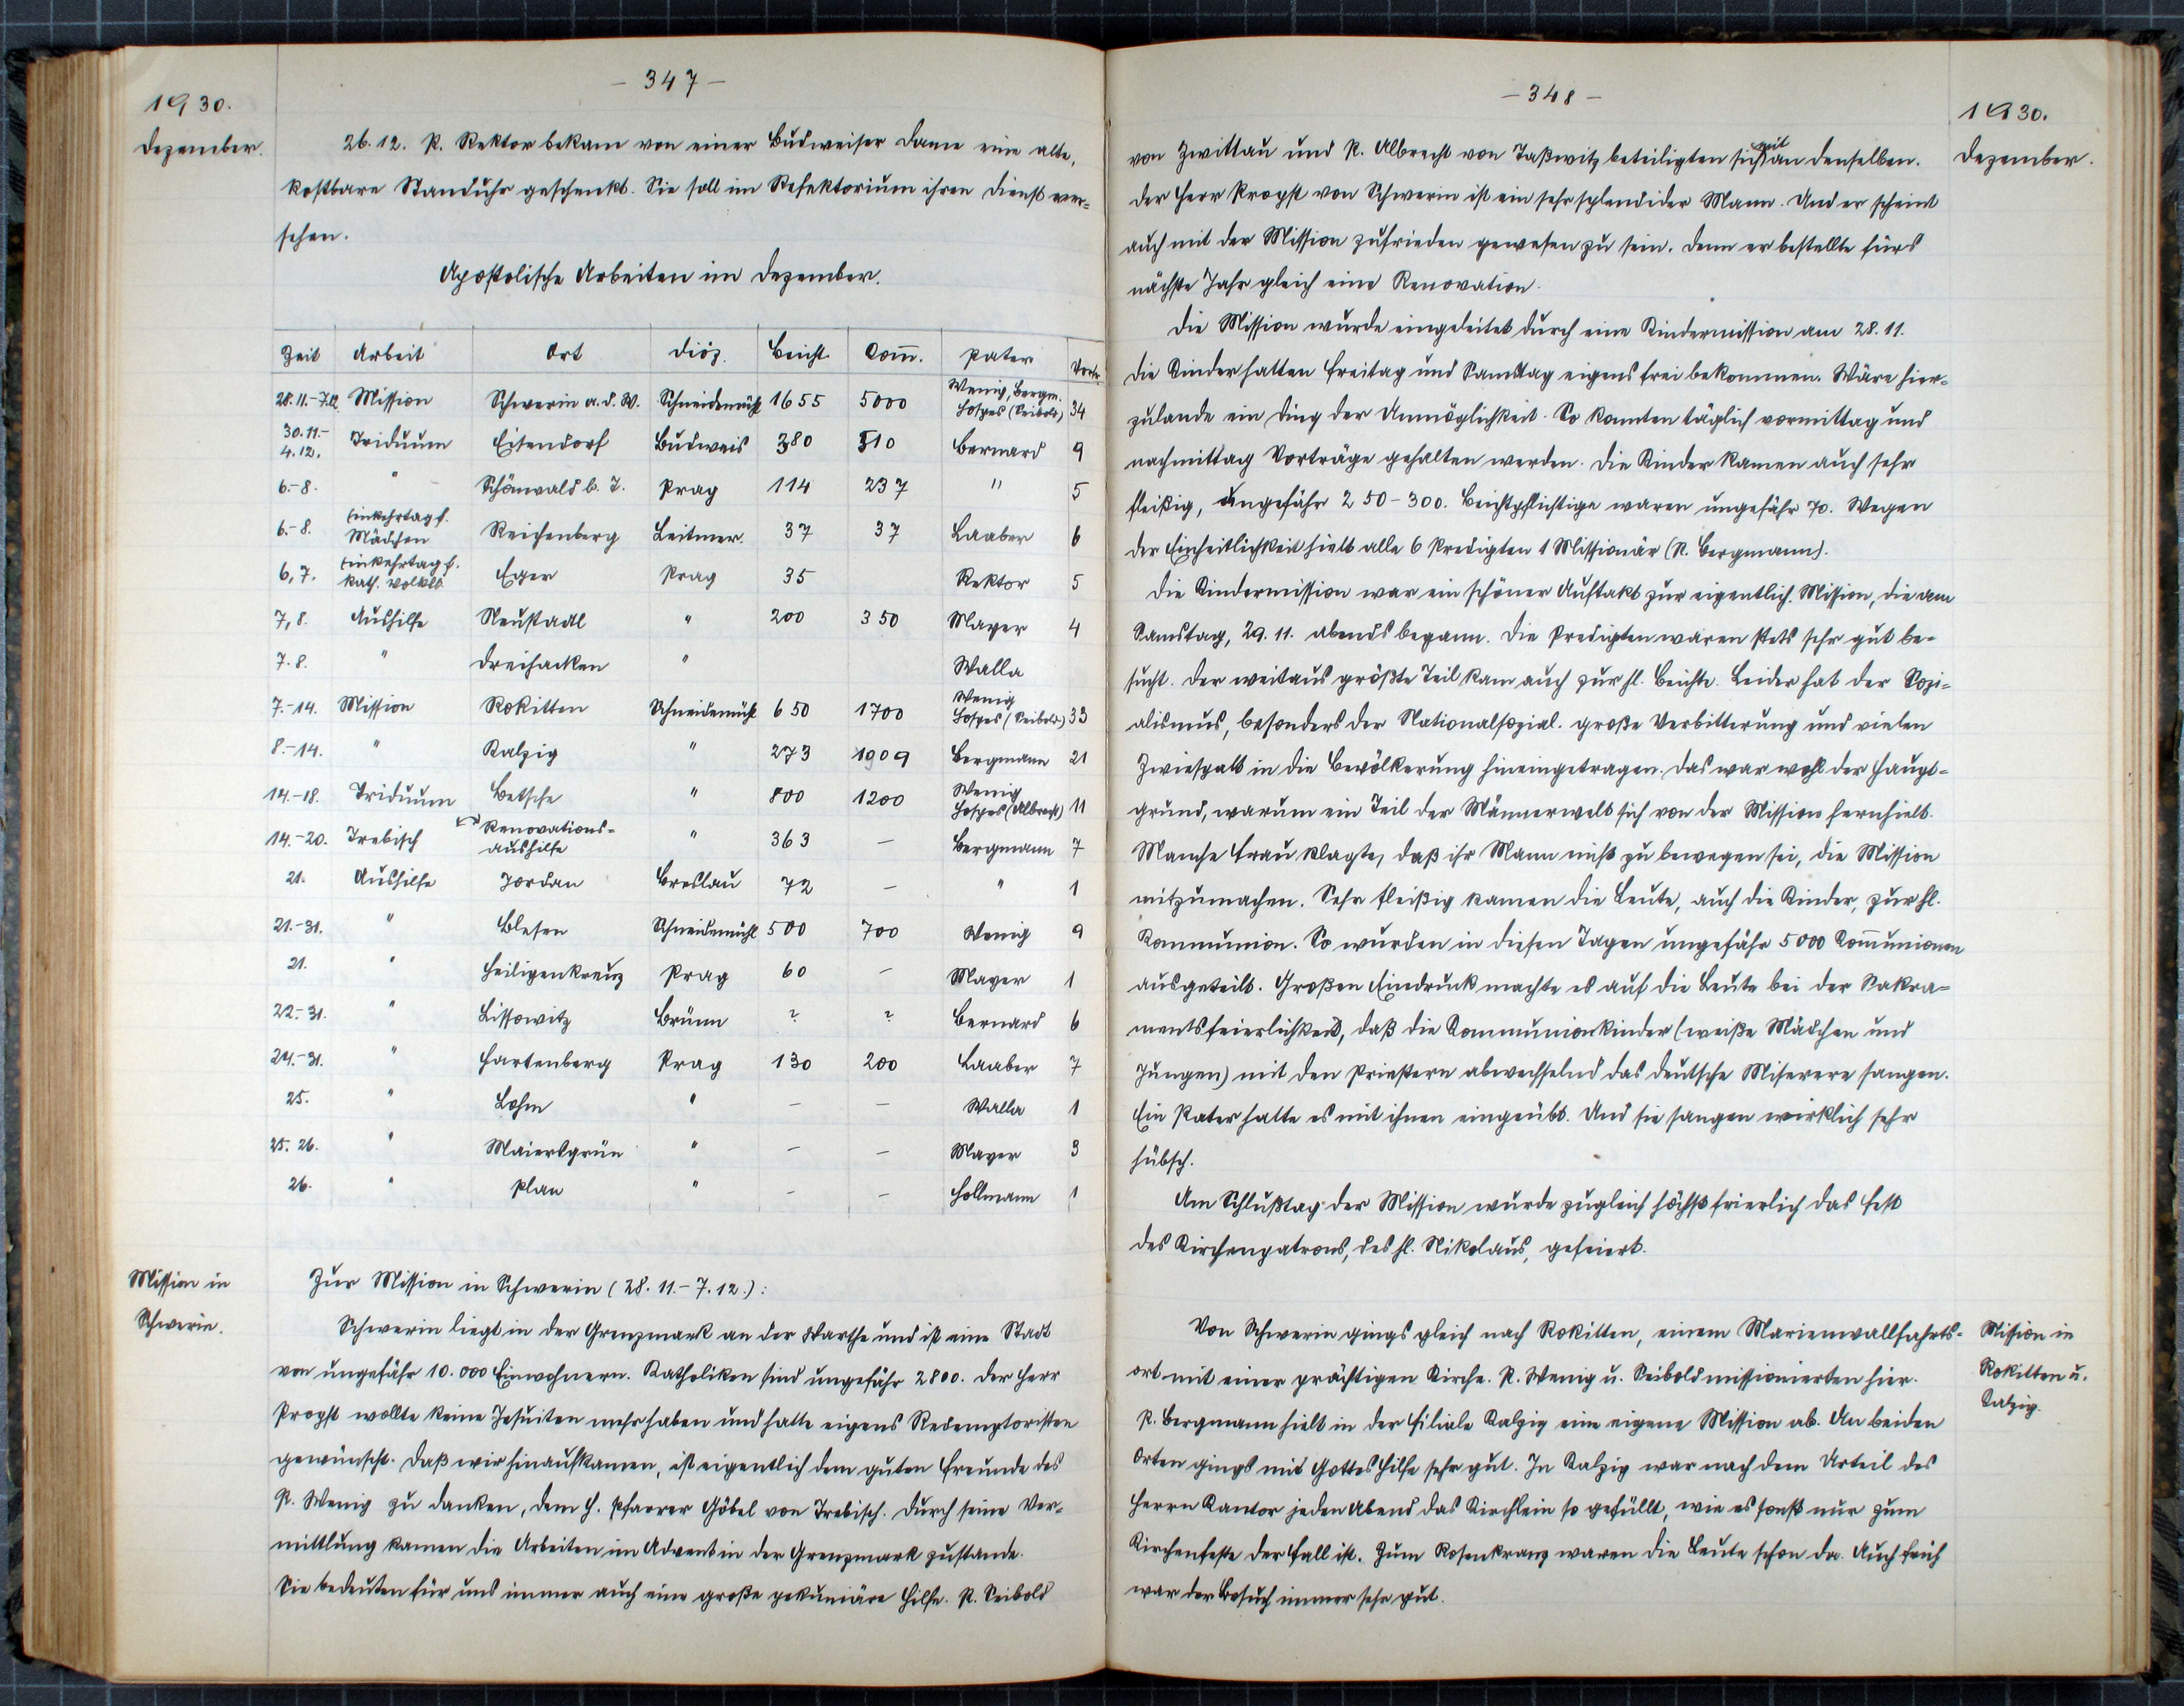 - 347 -
1930.
Dezember.
26.12. P. Rektor bekam von einer Budweiser Dame eine alte,
kostbare Standuhr geschenkt. Sie soll im Refektorium ihren Dienst ver=
sehen.
Apostolische Arbeiten im Dezember.
Zeit Arbeit Ort Diöz. Beicht. Com̅. Pater Vortr.
28.11.-7.12. Mission Schwerin a.d.W. Schneidemühl 1655 5000 Wenig, Bergm. Hospes (Seibold) 34
30.11.-4.12. Triduum Eisendorf Budweis 380 510 Bernard 9
6.-8. " Schönwald b. T. Prag 114 237 " 5
6.-8. Einkehrtag f. Mädchen Reichenberg Leitmer. 37 37 Laaber 6
6,7. Einkehrtag f. kath. Volksb. Eger Prag 35 Rektor 5
7,8. Aushilfe Neustadtl " 200 350 Mayer 4
7.8. " Dreihacken " Walla
7.-14. Mission Rokitten Schneidemühl 650 1700 Wenig Hospes (Seibold) 33
8.-14. " Kalzig " 273 1909 Bergmann 21
14.-18. Triduum Betsche " 800 1200 Wenig Hospes (Albrecht) 11
14.-20. Trebisch Renovations=aushilfe " 363 — Bergmann 7
21. Aushilfe Jordan Breslau 72 — " 1
21.-31. " Blesen Schneidemühl 500 700 Wenig 9
21. " Heiligenkreuz Prag 60 — Mayer 1
22.-31. " Lissowitz Brünn ? ? Bernard 6
24.-31. " Hartenberg Prag 130 200 Laaber 7
25. " Lohm " — — Walla 1
25. 26. " Maiersgrün " — — Mayer 3
26. " Plan " — — Hollmann 1
Mission in
Schwerin.
Zur Mission in Schwerin (28.11.-7.12.):
Schwerin liegt in der Grenzmark an der Warthe und ist eine Stadt
von ungefähr 10.000 Einwohnern. Katholiken sind ungefähr 2800. Der Herr
Propst wollte keine Jesuiten mehr haben und hatte eigens Redemptoristen
gewünscht. Daß wir hinaufkamen, ist eigentlich dem guten Freunde des
P. Wenig zu danken, dem H. Pfarrer Göbel von Trebisch. Durch seine Ver=
mittlung kamen die Arbeiten im Advent in der Grenzmark zustande.
Sie bedeuten für uns immer auch eine große pekuniäre Hilfe. P. Seibold
- 348 -
1930.
Dezember.
von Zwittau und P. Albrecht von Taßwitz beteiligten sich mit an denselben.
Der Herr Propst von Schwerin ist ein sehr splendider Mann. Und er scheint
auch mit der Mission zufrieden gewesen zu sein. Denn er bestellte fürs
nächste Jahr gleich eine Renovation.
Die Mission wurde eingeleitet durch eine Kindermission am 28.11.
Die Kinder hatten Freitag und Samstag eigens frei bekommen. Wäre hier=
zulande ein Ding der Unmöglichkeit. So konnten täglich vormittag und
nachmittag Vorträge gehalten werden. Die Kinder kamen auch sehr
fleißig, ungefähr 250-300. Beichtpflichtige waren ungefähr 70. Wegen
der Einheitlichkeit hielt alle 6 Predigten 1 Missionär (P. Bergmann).
Die Kindermission war ein schöner Auftakt zur eigentlich. Mission, die am
Samstag, 29.11. abends begann. Die Predigten waren stets sehr gut be=
sucht. Der weitaus größte Teil kam auch zur hl. Beichte. Leider hat der Sozi=
alismus, besonders der Nationalsozial. große Verbitterung und vielen
Zwiespalt in die Bevölkerung hineingetragen. Das war wohl der Haupt=
grund, warum ein Teil der Männerwelt sich von der Mission fernhielt.
Manche Frau klagte, daß ihr Mann nicht zu bewegen sei, die Mission
mitzumachen. Sehr fleißig kamen die Leute, auch die Kinder, zur hl.
Kommunion. So wurden in diesen Tagen ungefähr 5000 Kom̅unionen
ausgeteilt. Großen Eindruck machte es auf die Leute bei der Sakra=
mentsfeierlichkeit, daß die Kommunionkinder (weiße Mädchen und
Jungen) mit den Priestern abwechselnd das deutsche Miserere sangen.
Ein Pater hatte es mit ihnen eingeübt. Und sie sangen wirklich sehr
hübsch.
Am Schlußtag der Mission wurde zugleich höchst feierlich das Fest
des Kirchenpatrons, des hl. Nikolaus, gefeiert.
Von Schwerin gings gleich nach Rokitten, einem Marienwallfahrts=
ort mit einer prächtigen Kirche. P. Wenig u. Seibold missionierten hier.
P. Bergmann hielt in der Filiale Kalzig eine eigene Mission ab. An beiden
Orten gings mit Gottes Hilfe sehr gut. In Kalzig war nach dem Urteil des
Herrn Kantor jeden Abend das Kirchlein so gefüllt, wie es sonst nur zum
Kirchenfeste der Fall ist. Zum Rosenkranz waren die Leute schon da. Auch früh
war der Besuch immer sehr gut.
Mission in
Rokitten u.
Kalzig.